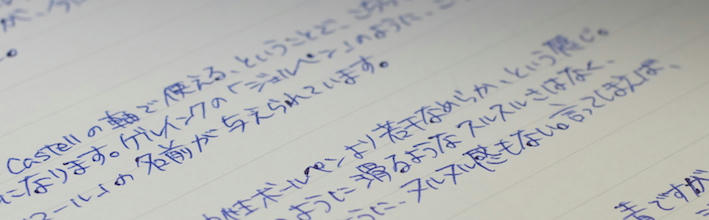 が、
Castellの軸で使える、ということで、
になります。ゲルインクの「ジェルペン」のように、こ
ール」の名前が与えられています。
性ボールペンより若干なめらか、という感じ。
ように滑るようなスルスルさはなく、
うに、ヌルヌル感もない。言ってしまえば、
ますが